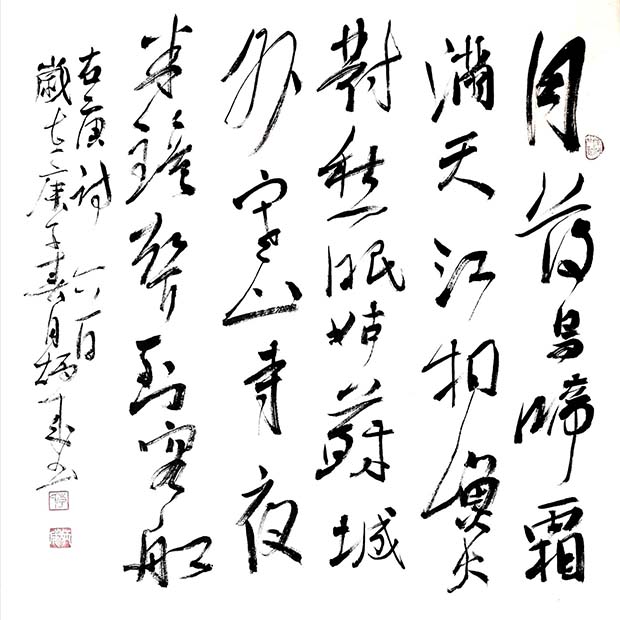 月落烏啼霜
滿天江楓漁火
對愁眠姑蘇城
外寒山寺夜
半鐘聲到客船
右唐詩一首
歲在庚子春月炳